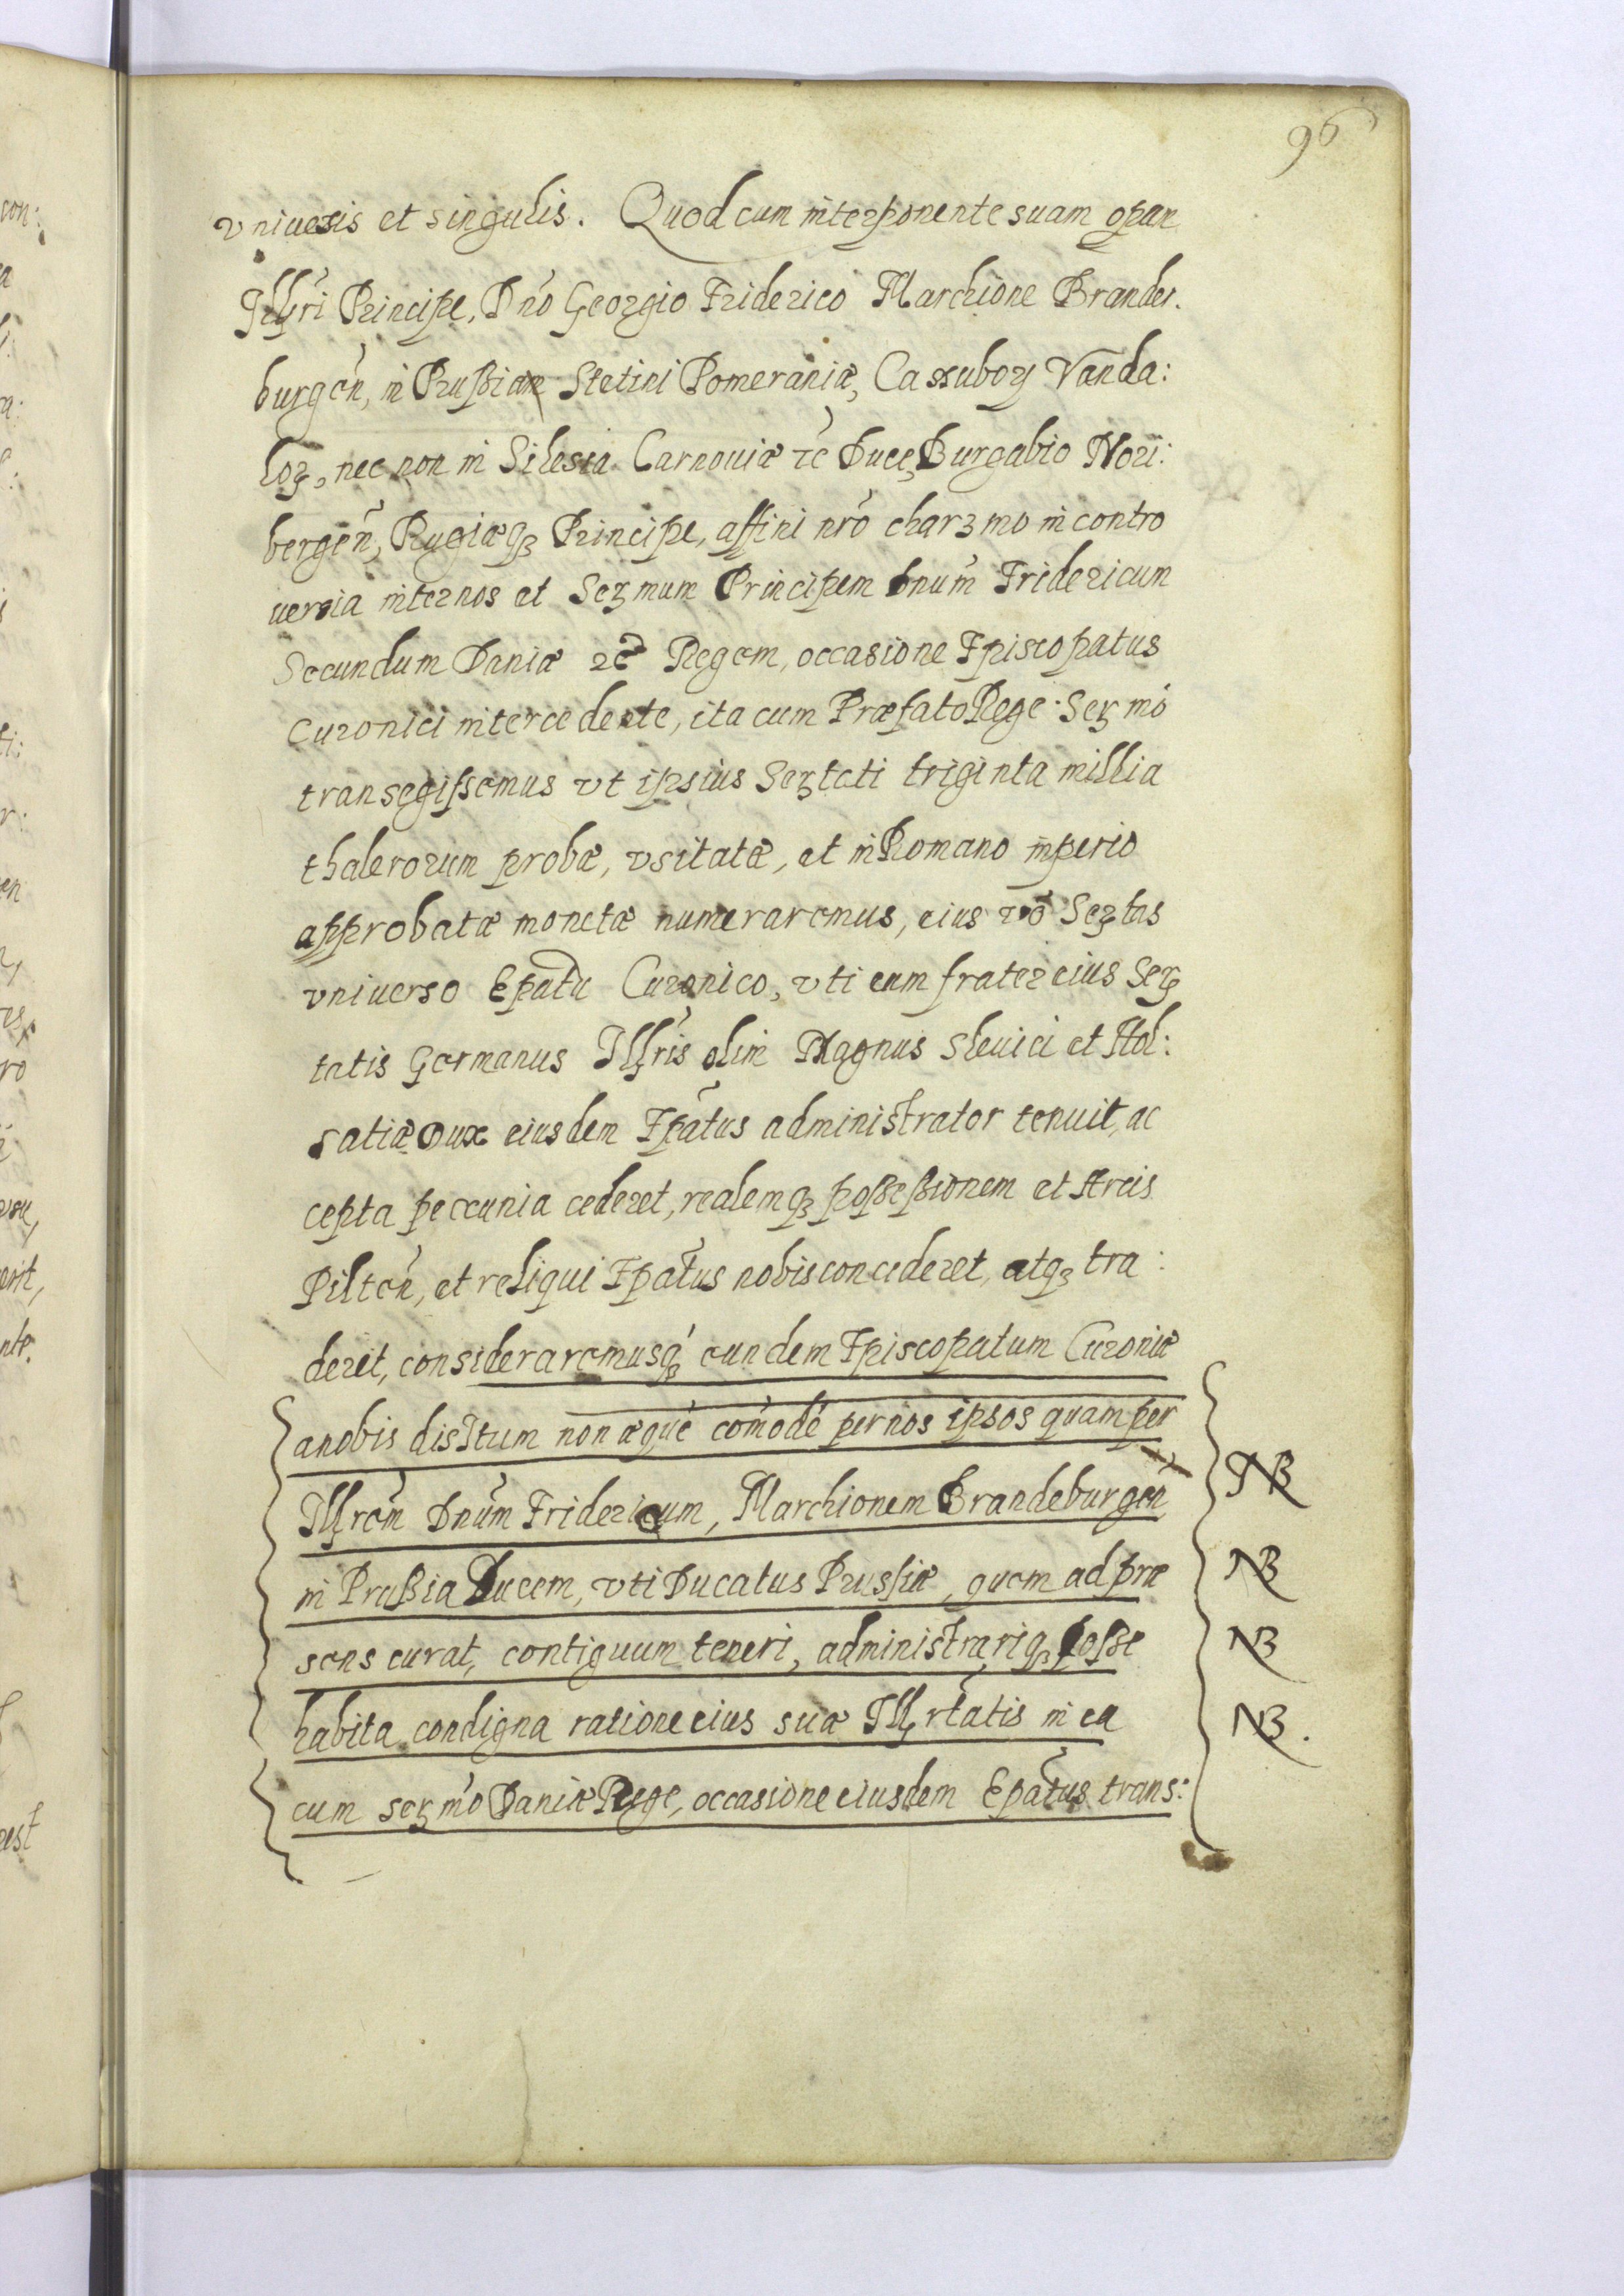 96
vniuersis et singulis. Quod cum interponente suam operam
Illri Principe, Dno Georgio Friderico Marchione Brandes.
burgen, in Prußiam Stetini Pomeraniæ, Cassuboꝝ Vanda:
loꝝ, nec non in Silesia Carnouiæ ꝛc Duce, Burgabio Nori:
bergen, Rugiæqꝫ Principe, affini nro charꝫmo in contro
uersia inter nos et Serꝫmum Principem Dnum Fridericum
Secundum Daniæ ꝛc Regem, occasione Episcopatus
Curonici intercedente, ita cum Præfato Rege Serꝫmo
transegissemus vt ipsius Serꝫtati triginta millia
thalerorum probæ, vsitatæ, et in Romano imperio
approbatæ monetæ numeraremus, eius vo Serꝫtas
vniuerso Epatu Curonico, vti eum frater eius Serꝫ
tatis Germanus Illris olim Magnus Sleuici et Hol:
satiæ Dux eiusdem Epatus administrator tenuit, ac
cepta peccunia cederet, realemqꝫ poßeßionem et Arcis
Pilten, et reliqui Epatus nobis concederet, atqꝫ tra:
deret, consideraremusqꝫ eundem Episcopatum Curoniæ
a nobis distitum non æque comode per nos ipsos quam per
Illrem Dnum Fridericum, Marchionem Brandeburgen
in Prußia Ducem, vti Ducatus Prussiæ, quem ad præ
sens curat, contiguum teneri, administrariqꝫ poße
habita condigna ratione eius suæ Illrtatis in ea
cum serꝫmo Daniæ Rege, occasione eiusdem Epatus trans:
NB
NB
NB
NB.